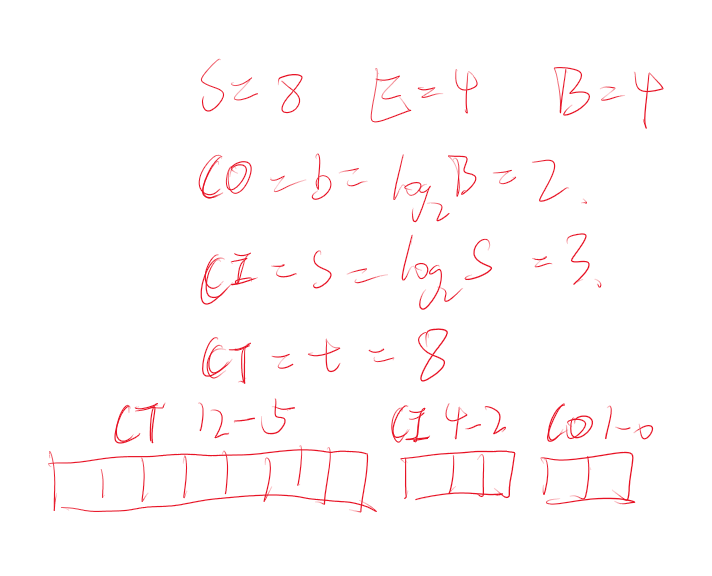 S=8 E=4 B=4
CO=b=log₂B=2.
CI=s=log₂S=3.
CT=t=8
CT 12-5 CI 4-2 CO 1-0